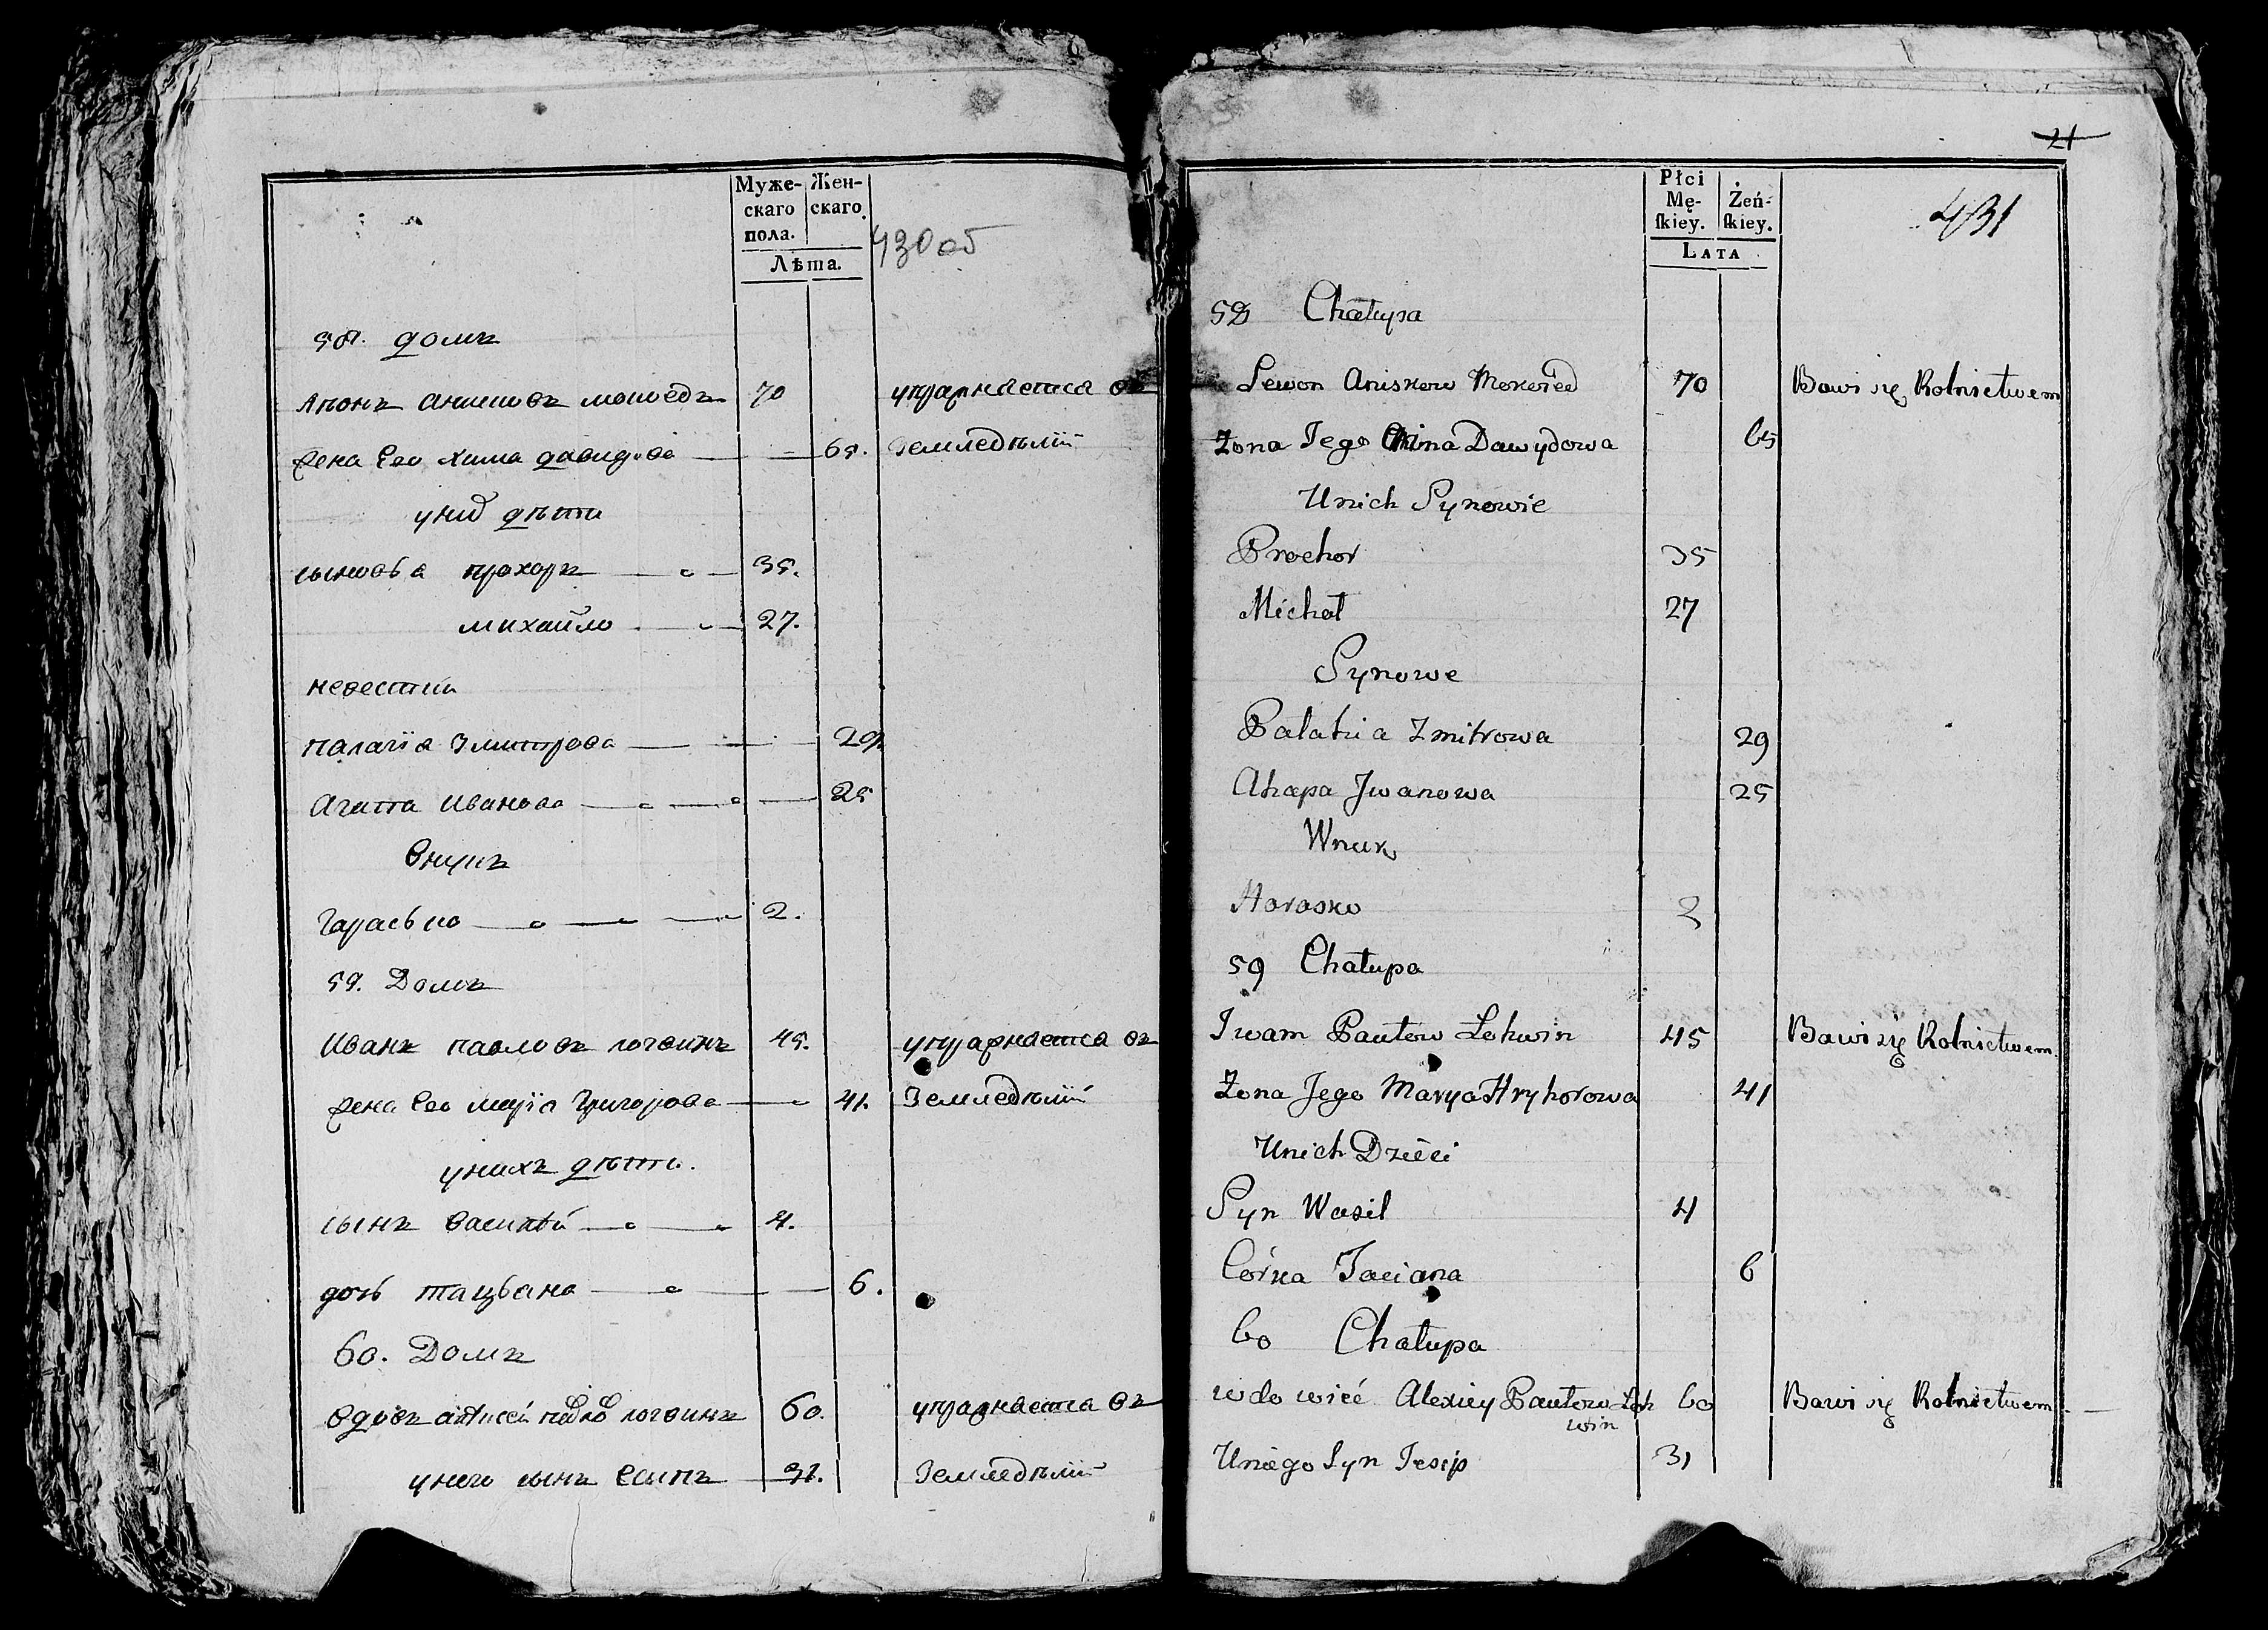 Муже-
скаго
пола.
Жен-
скаго.
Лѣта.
430 об
58. домъ
70 упражнается въ
жена Ево Хима давидова 65. Земледѣлiи
у них дѣти
сыновья прохоръ 35.
михайло 27.
невестки
палагїя Змитрова 29
Агапа Иванова 25
Внукъ
Гарасько 2.
59. Домъ
Иванъ павловъ логвинъ 45. упражнается въ
жена Ево марїя Григорова 41. Земледѣлiи
у нихъ дѣти.
сынъ Василѣй 4.
дочь тацьяна 6.
60. Домъ
вдовъ алексѣй павлов логвинъ 60. упражнается въ
у него сынъ Есыпъ 31. Земледѣлiи
21
Płci
Mę-
skiey.
Żeń-
skiey.
431
LATA
58 Chałupa
Lewon Aniskow 70 Bawi się Rolnictwem
Żona Jego Chima Dawydowa 65
U nich Synowie
Prochor 35
Michał 27
Synowe
Palahia Zmitrowa 29
Ahapa Jwanowa 25
Wnuk
Harasko 2
59 Chałupa
Iwam Pautow Lohwin 45 Bawi się Rolnictwem.
Żona Jego Marya Hryhorowa 41
U nich Dzieci
Syn Wasil 4
Córka Taciana 6
60 Chałupa
wdowiec Alexiey Pautow Loh 60 Bawi się Rolnictwem.
win
U niego Syn Jesip 31